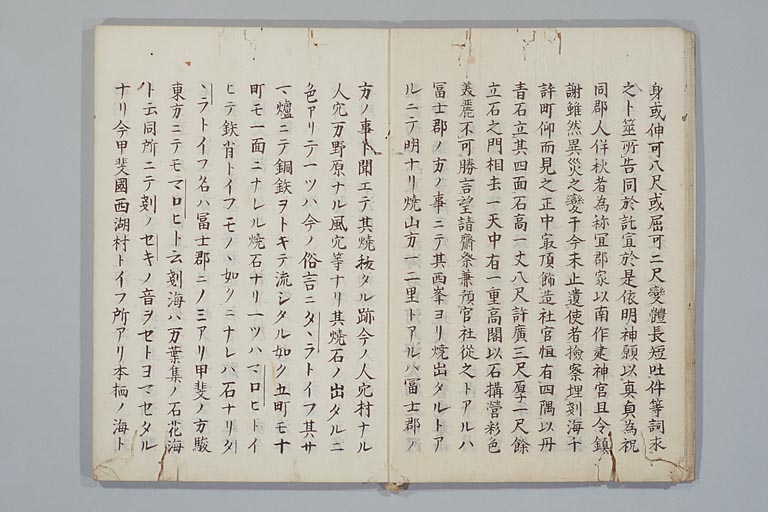 身或伸可八尺或屈可二尺變體長短吐件等詞求
之卜筮所告同於託宣於是依明神願以真貞為祝
同郡人伴秋者為祢宜郡家以南作建神宮且令鎮
謝雖然異災之變于今未止遣使者檢察埋剗海千
許町仰而見之正中最頂飾造社宮恒有四隅以丹
青石立其四面石高一丈八尺許廣三尺厚一尺餘
立石之門相去一尺中有一重高閣以石搆營彩色
美麗不可勝言望請齋祭兼預官社從之トアルハ
冨士郡ノ方ノ事ニテ其西峯ヨリ焼出タルトア
ルニテ明ナリ焼山方一二里トアルハ冨士郡ノ
方ノ事ト聞エテ其焼抜タル跡今ノ人穴村ナル
人穴万野原ナル風穴等ナリ其焼石ノ出タルニ
色アリテ一ツハ今ノ俗言ニタヽラトイフ其サ
マ爐ニテ銅鉄ヲトキテ流シタル如ク五町モ十
町モ一面ニナレル焼石ナリ一ツハマロヒトイ
ヒテ鉄肖トイフモノヽ如クニナレル石ナリタ
ヽラトイフ名ハ冨士郡ニノミアリ甲斐ノ方駿
東方ニテモマロヒト云剗海ハ万葉集ノ石花海
ト云同所ニテ剗ノセキノ音ヲセトヨマセタル
ナリ今甲斐國西湖村トイフ所アリ本栖ノ海ト